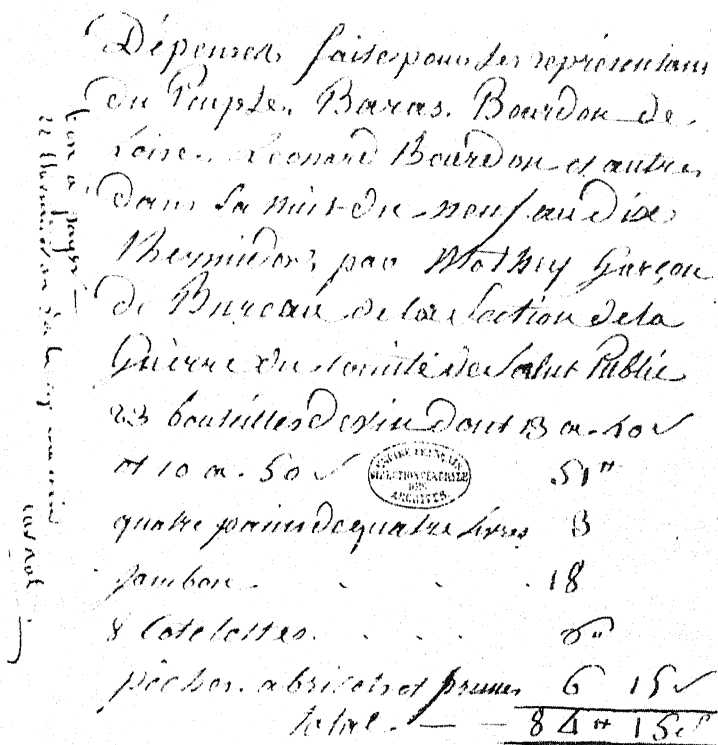 Dépenses faite pour les représentans
du Peuple. Baras. Bourdon de
Loise. Léonard Bourdon et autres
dans la nuit du neuf au dix
Thermidor, par Mathey Garçon
de Bureau de la Section de la
Guerre du Comité de Salut Public
23 bouteilles de vin dont 13 a 40 s
et 10 a 50 s 51 ₶
quatre pains de quatre livres 3
Jambon . . . 18
8 Cotelettes . . . 6 ₶
pêches. abricots et prunes 6 15 s
total — — 84 ₶ 15 s
EMPIRE FRANÇAIS
DIRECTION GÉNÉRALE
DES
ARCHIVES.
bon a payer
22 thermidor
carnot